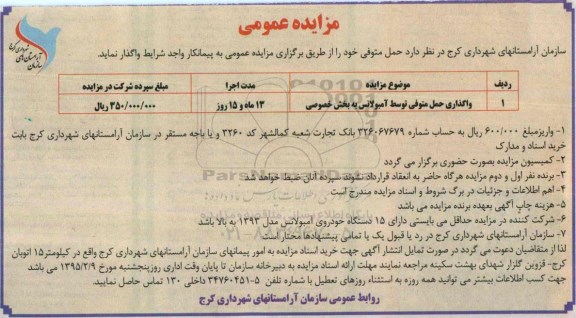 مزایده عمومی
سازمان آرامستانهای شهرداری کرج
سازمان آرامستانهای شهرداری کرج در نظر دارد حمل متوفی خود را از طریق برگزاری مزایده عمومی به پیمانکار واجد شرایط واگذار نماید.
ردیف موضوع مزایده مدت اجرا مبلغ سپرده شرکت در مزایده
۱ واگذاری حمل متوفی توسط آمبولانس به بخش خصوصی ۱۳ ماه و ۱۵ روز ۳۵۰/۰۰۰/۰۰۰ ریال
۱- واریزمبلغ ۶۰۰/۰۰۰ ریال به حساب شماره ۳۲۶۰۶۷۶۷۹ بانک تجارت شعبه کمالشهر کد ۳۲۶۰ و یا باجه مستقر در سازمان آرامستانهای شهرداری کرج بابت
خرید اسناد و مدارک
۲- کمیسیون مزایده بصورت حضوری برگزار می گردد
۳- برنده نفر اول و دوم مزایده هرگاه حاضر به انعقاد قرارداد نشوند سپرده آنان ضبط خواهد شد
۴- اهم اطلاعات و جزئیات در برگ شروط و اسناد مزایده مندرج است
۵- هزینه چاپ آگهی بعهده برنده مزایده می باشد
۶- شرکت کننده در مزایده حداقل می بایستی دارای ۱۵ دستگاه خودروی آمبولانس مدل ۱۳۹۳ به بالا باشد
۷- سازمان آرامستانهای شهرداری کرج در رد یا قبول یک یا تمامی پیشنهادها مختار است
لذا از متقاضیان دعوت می گردد در صورت تمایل انتشار آگهی جهت خرید اسناد مزایده به امور پیمانهای سازمان آرامستانهای شهرداری کرج واقع در کیلومتر۱۵ اتوبان
کرج- قزوین گلزار شهدای بهشت سکینه مراجعه نمایند مهلت ارائه اسناد مزایده به دبیرخانه سازمان تا پایان وقت اداری روزپنجشنبه مورخ ۱۳۹۵/۲/۹ می باشد
جهت کسب اطلاعات بیشتر می توانید همه روزه به استثناء روزهای تعطیل با شماره تلفن ۵-۳۴۷۶۰۴۵۱ داخلی ۱۳۰ تماس حاصل نمایید.
روابط عمومی سازمان آرامستانهای شهرداری کرج